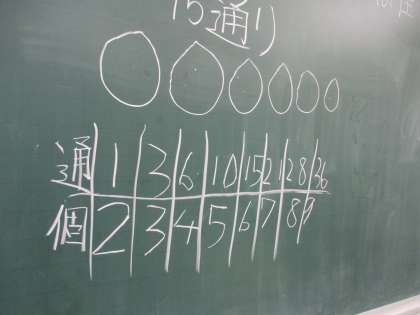 15通り
通 1 3 6 10 15 21 28 36
個 2 3 4 5 6 7 8 9